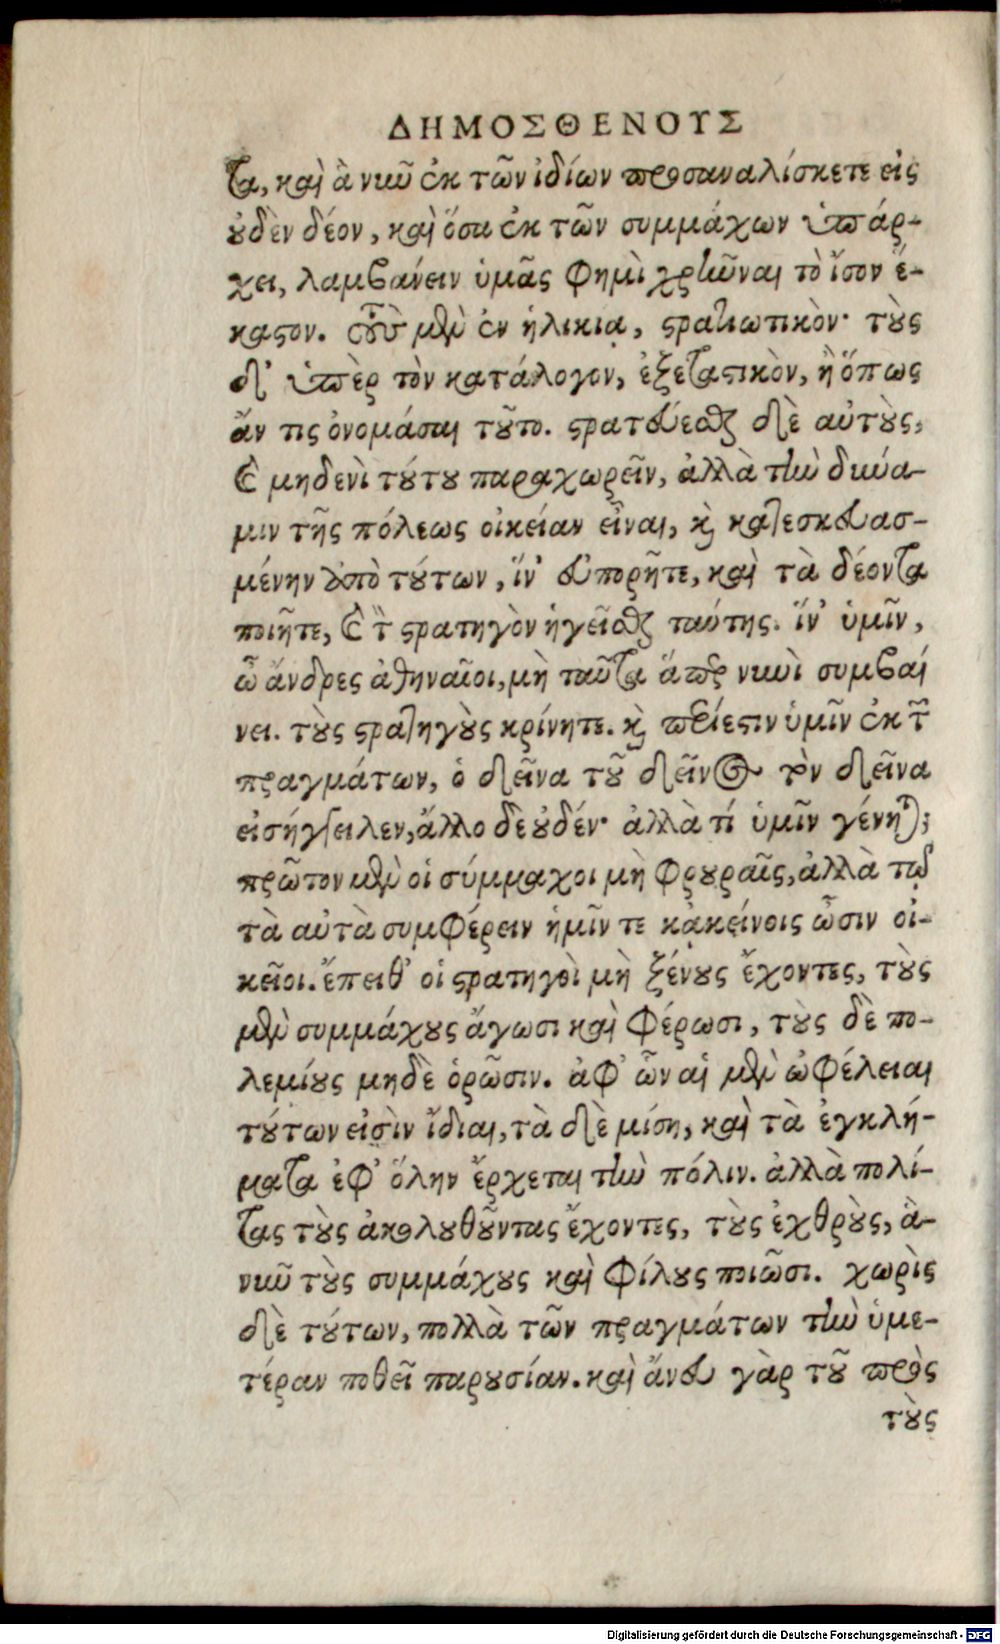 ΔΗΜΟΣΘΕΝΟΥΣ
τα, καὶ ἃ νῦν ἐκ τῶν ἰδίων προσαναλίσκετε εἰς
οὐδὲν δέον, καὶ ὅσα ἐκ τῶν συμμάχων ὑπάρ-
χει, λαμβάνειν ὑμᾶς φημὶ χρῆναι τὸ ἴσον ἕ-
καστον. τοὺς μὲν ἐν ἡλικίᾳ, στρατιωτικὸν· τοὺς
δ' ὑπὲρ τὸν κατάλογον, ἐξεταστικὸν, ἢ ὅπως
ἄν τις ὀνομάσαι τοῦτο. στρατεύεσθαι δὲ αὐτοὺς,
καὶ μηδενὶ τούτου παραχωρεῖν, ἀλλὰ τὴν δύνα-
μιν τῆς πόλεως οἰκείαν εἶναι, καὶ κατεσκευασ-
μένην ἀπὸ τούτων, ἵν' εὐπορῆτε, καὶ τὰ δέοντα
ποιῆτε, καὶ τὸν στρατηγὸν ἡγεῖσθαι ταύτης. ἵν' ὑμῖν,
ὦ ἄνδρες ἀθηναῖοι, μὴ ταῦτα ἅπερ νυνὶ συμβαί
νει. τοὺς στρατηγοὺς κρίνητε. καὶ περίεστιν ὑμῖν ἐκ τῶν
πραγμάτων, ὁ δεῖνα τοῦ δεῖνος τὸν δεῖνα
εἰσήγγειλεν, ἄλλο δὲ οὐδέν· ἀλλὰ τί ὑμῖν γένηται;
πρῶτον μὲν οἱ σύμμαχοι μὴ φρουραῖς, ἀλλὰ τῷ
τὰ αὐτὰ συμφέρειν ἡμῖν τε κἀκείνοις ὦσιν οἰ-
κεῖοι. ἔπειθ' οἱ στρατηγοὶ μὴ ξένους ἔχοντες, τοὺς
μὲν συμμάχους ἄγωσι καὶ φέρωσι, τοὺς δὲ πο-
λεμίους μηδὲ ὁρῶσιν. ἀφ' ὧν αἱ μὲν ὠφέλειαι
τούτων εἰσὶν ἴδιαι, τὰ δὲ μίση, καὶ τὰ ἐγκλή-
ματα ἐφ' ὅλην ἔρχεται τὴν πόλιν. ἀλλὰ πολί-
τας τοὺς ἀκολουθοῦντας ἔχοντες, τοὺς ἐχθροὺς, ἃ
νῦν τοὺς συμμάχους καὶ φίλους ποιῶσι. χωρὶς
δὲ τούτων, πολλὰ τῶν πραγμάτων τὴν ὑμε-
τέραν ποθεῖ παρουσίαν. καὶ ἄνευ γὰρ τοῦ πρὸς
τοὺς
Digitalisierung gefördert durch die Deutsche Forschungsgemeinschaft - DFG